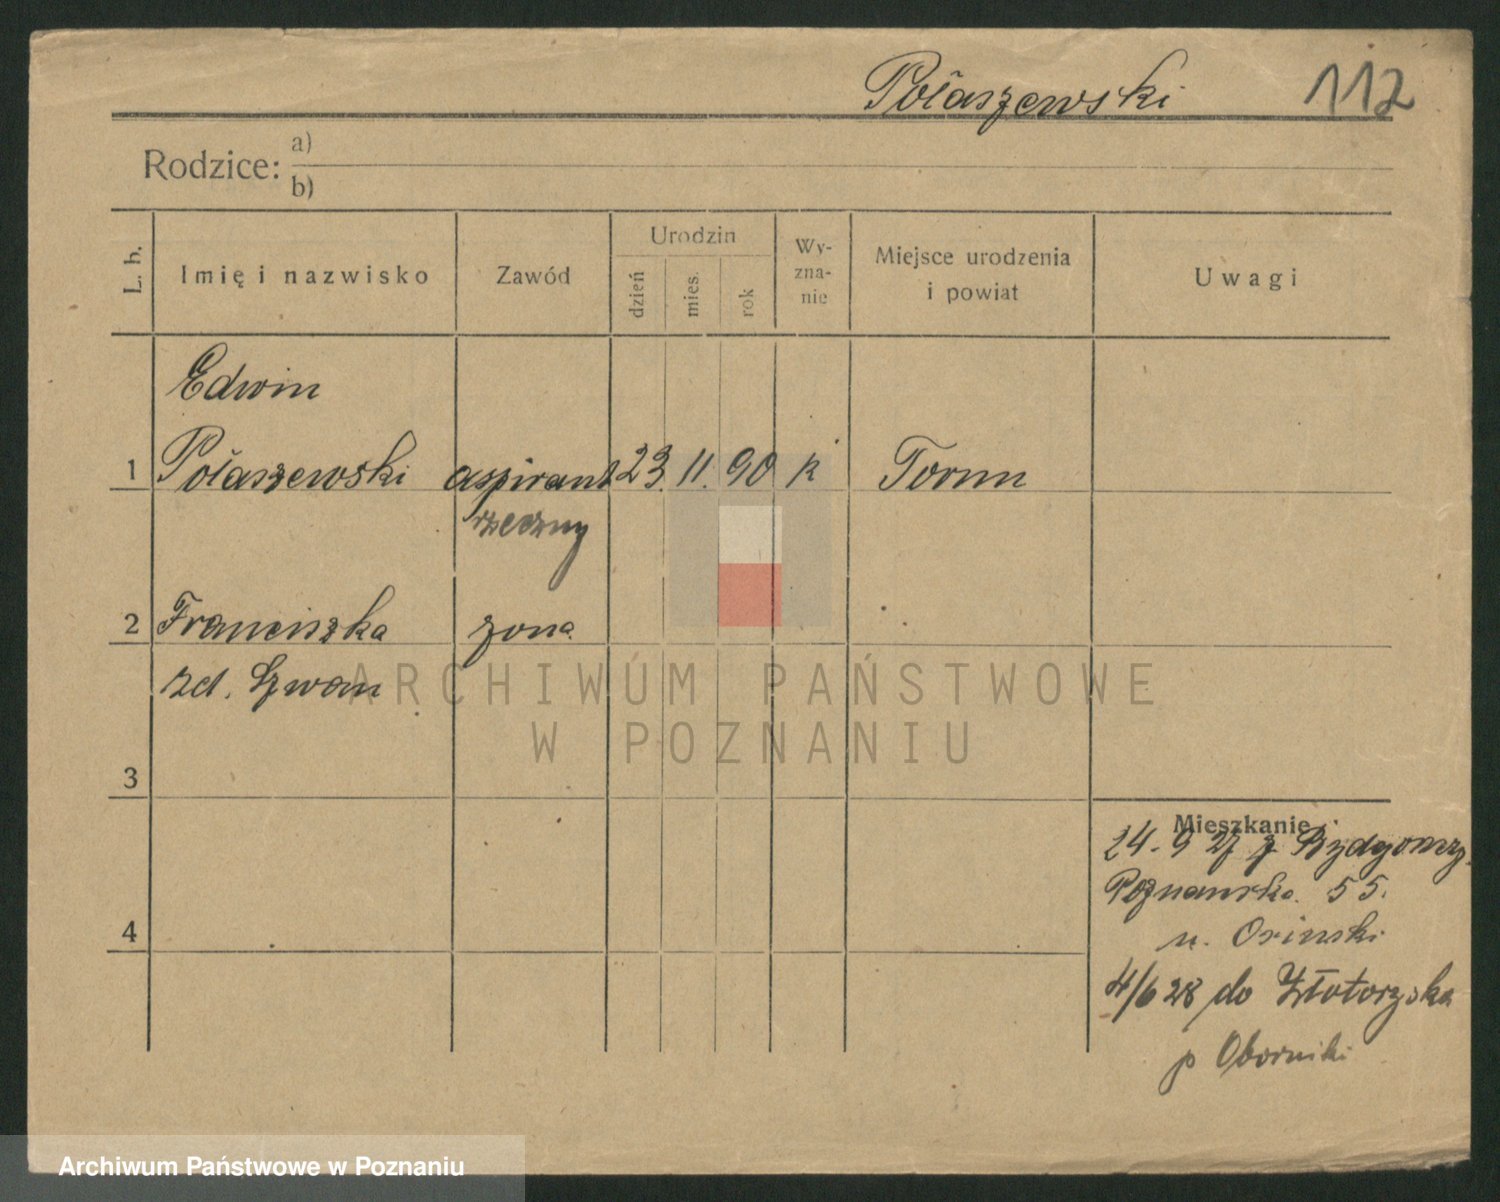 Połaszewski 112
Rodzice: a)
b)
L. b. Imię i nazwisko Zawód Urodzin dzień mies. rok Wy-zna-nie Miejsce urodzenia i powiat Uwagi
Edwin
1 Połaszewski aspirant 23. 11. 90 k Torun
rzeczny
2 Franciszka żona
zd.
3
Mieszkanie
24. 9 27 z Bydgoszcz.
Poznanska 55.
u. Osinski
4
4/6 28 do
p Oborniki
ARCHIWUM PAŃSTWOWE
W POZNANIU
Archiwum Państwowe w Poznaniu